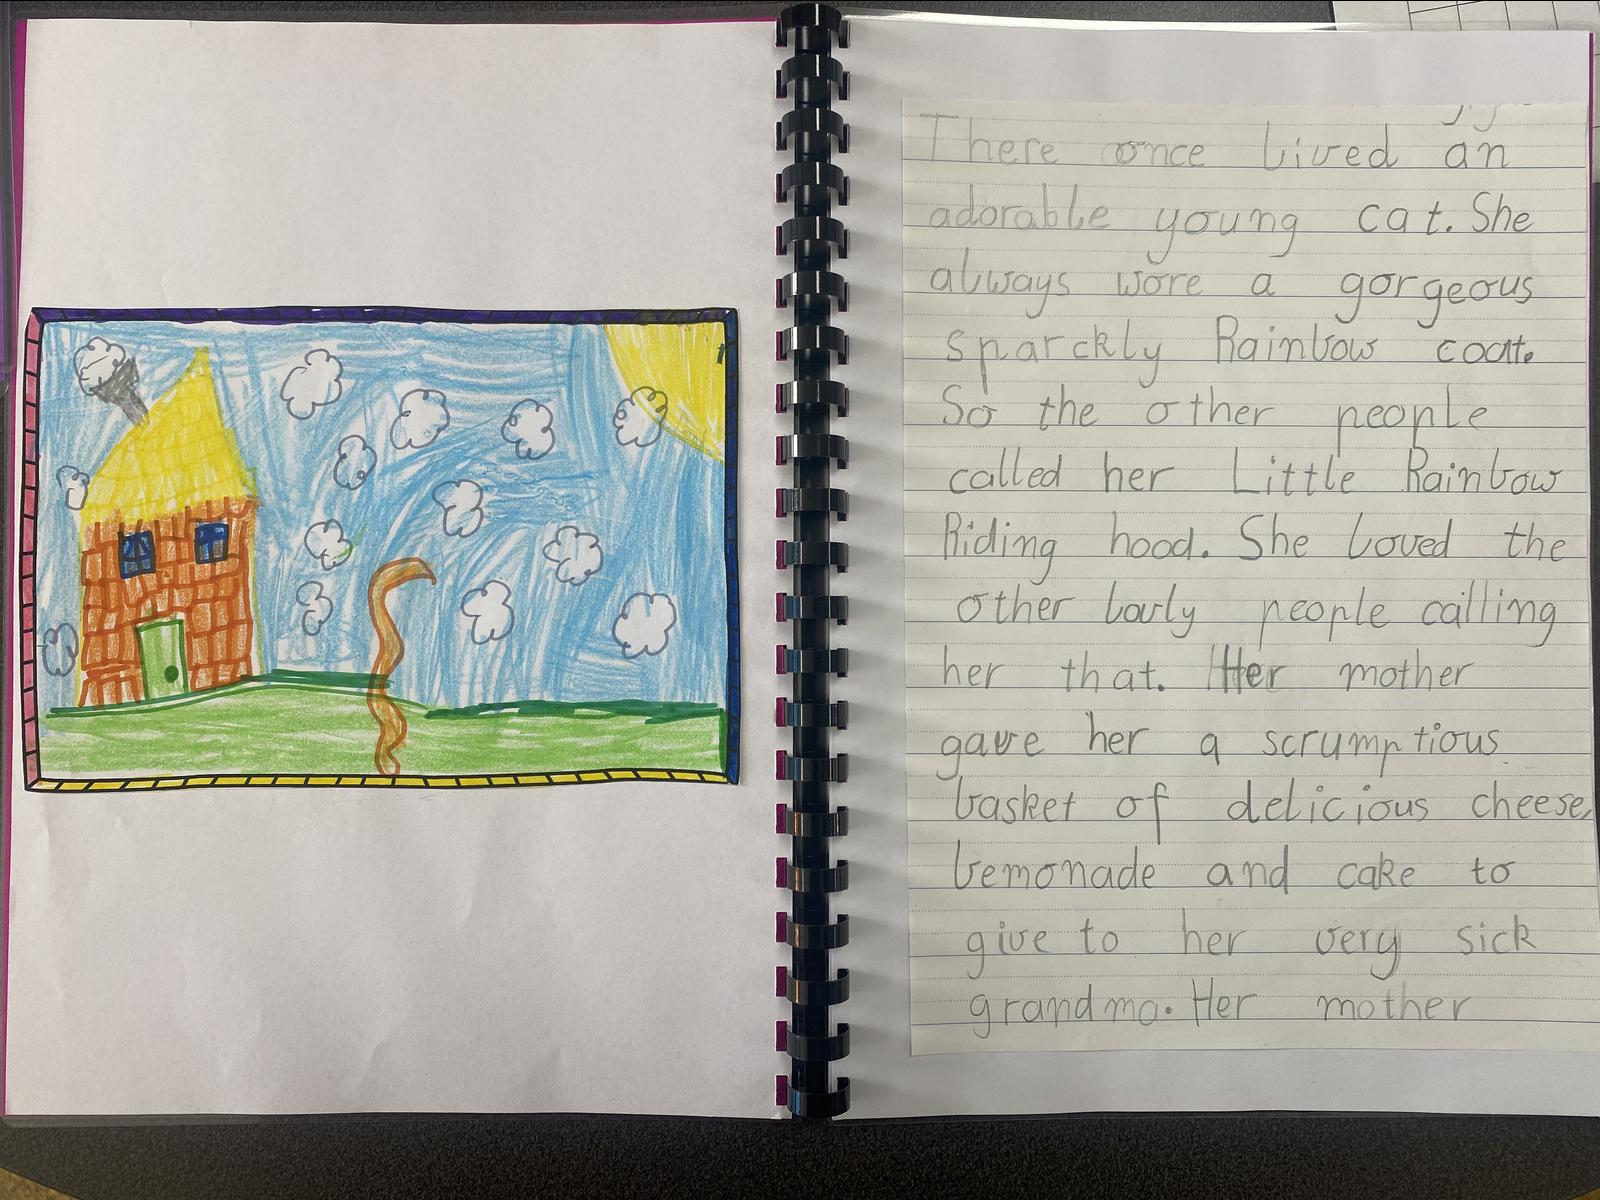 There once lived an
adorable young cat. She
always wore a gorgeous
sparckly Rainbow coat.
So the other people
called her Little Rainbow
Riding hood. She loved the
other lovly people calling
her that. Her mother
gave her a scrumptious
basket of delicious cheese,
lemonade and cake to
give to her very sick
grandma. Her mother